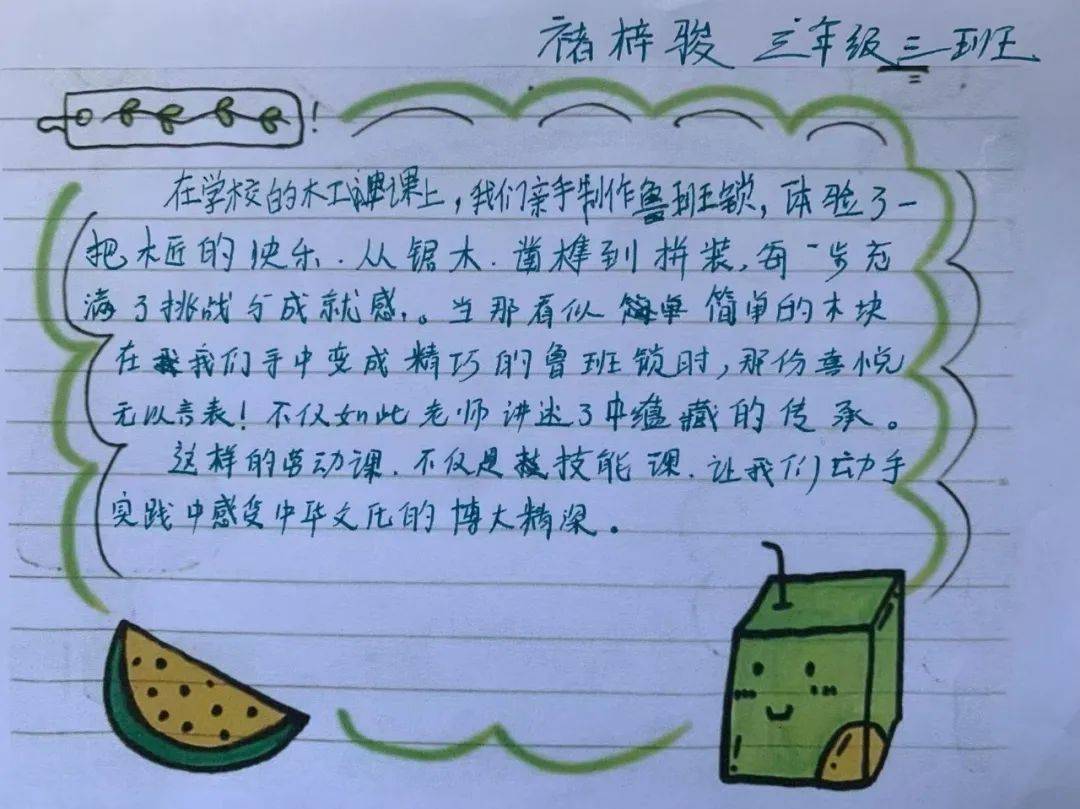 褚梓骏 三年级三班
在学校的木工课上,我们亲手制作鲁班锁,体验了一
把木匠的快乐.从锯木.凿榫到拼装,每一步充
满了挑战与成就感.。当那看似简单的木块
在我们手中变成精巧的鲁班锁时,那份喜悦
无以言表!不仅如此老师讲述了中蕴藏的传承。
这样的劳动课.不仅是技能课.让我们动手
实践中感受中华文化的博大精深。